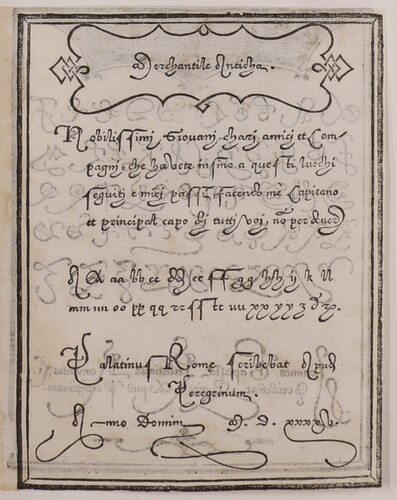 Merchantile Anticha.
Nobilissimi Giovani chari amici et Com-
pagni, che havete insino a questi luochi
seguiti e miei passi, facendo me Capitano
et principal capo di tutti voi, nõ per haver
A A aa bb cc dd ee ff gg hh ij k ll
mm nn oo pp qq rr ss tt uu xx yy z
Palatinus Rome scribebat Apud
Peregrinum.
Anno Domini M. D. xxxx